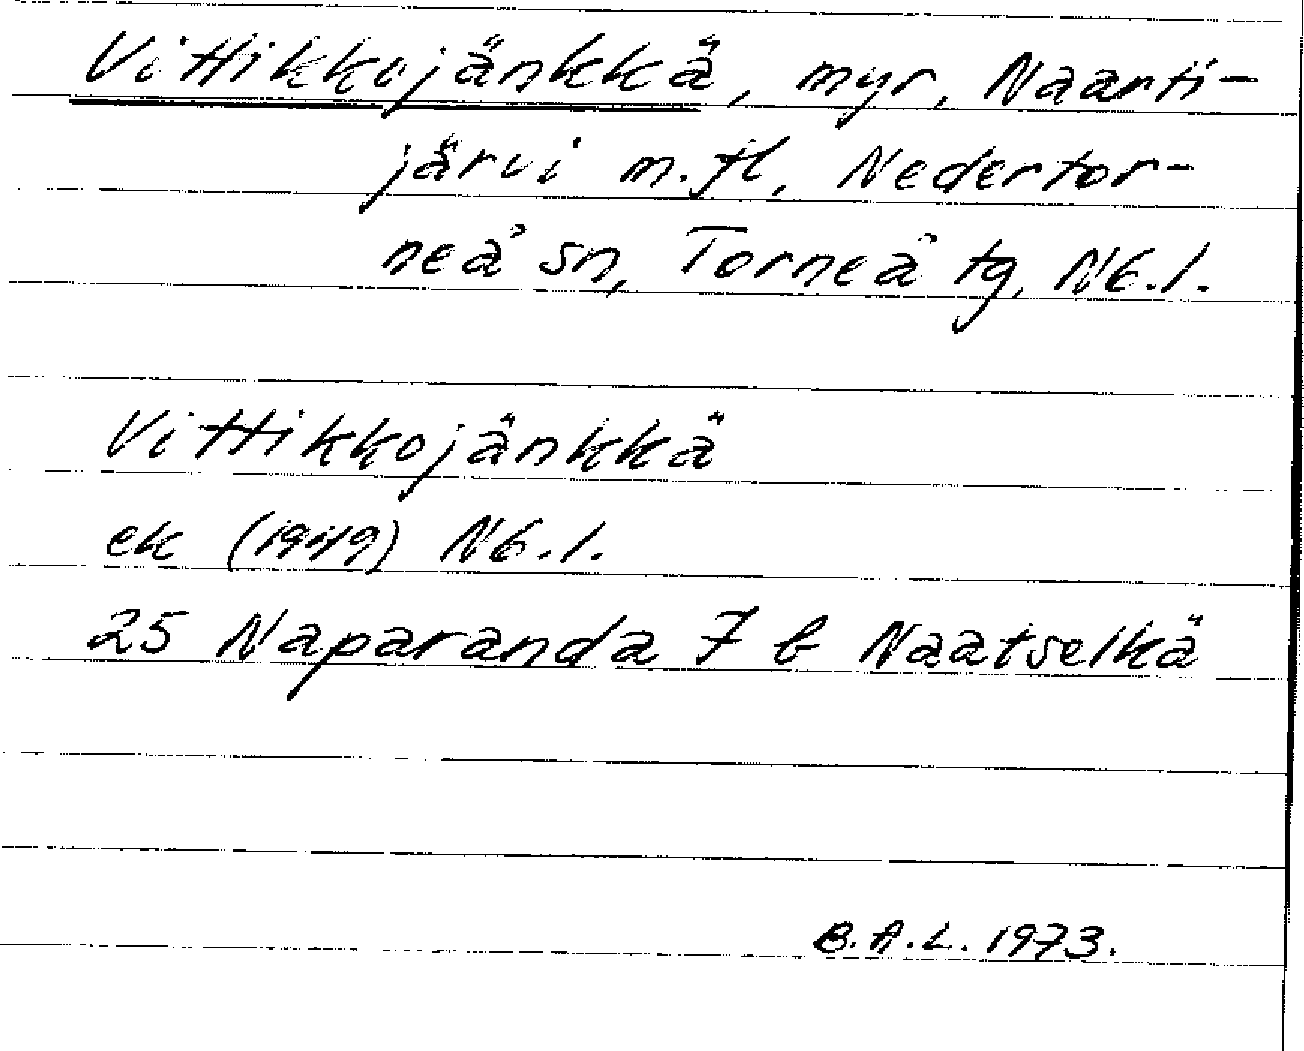 Vittikkojänkkä, myr, Naarti-
järvi m.fl, Nedertor-
neå sn, Torneå tg, Nb.l.
Vittikkojänkkä
ek (1949) Nb.l.
25 Haparanda 7 b Naatselkä
B.A.L. 1973.